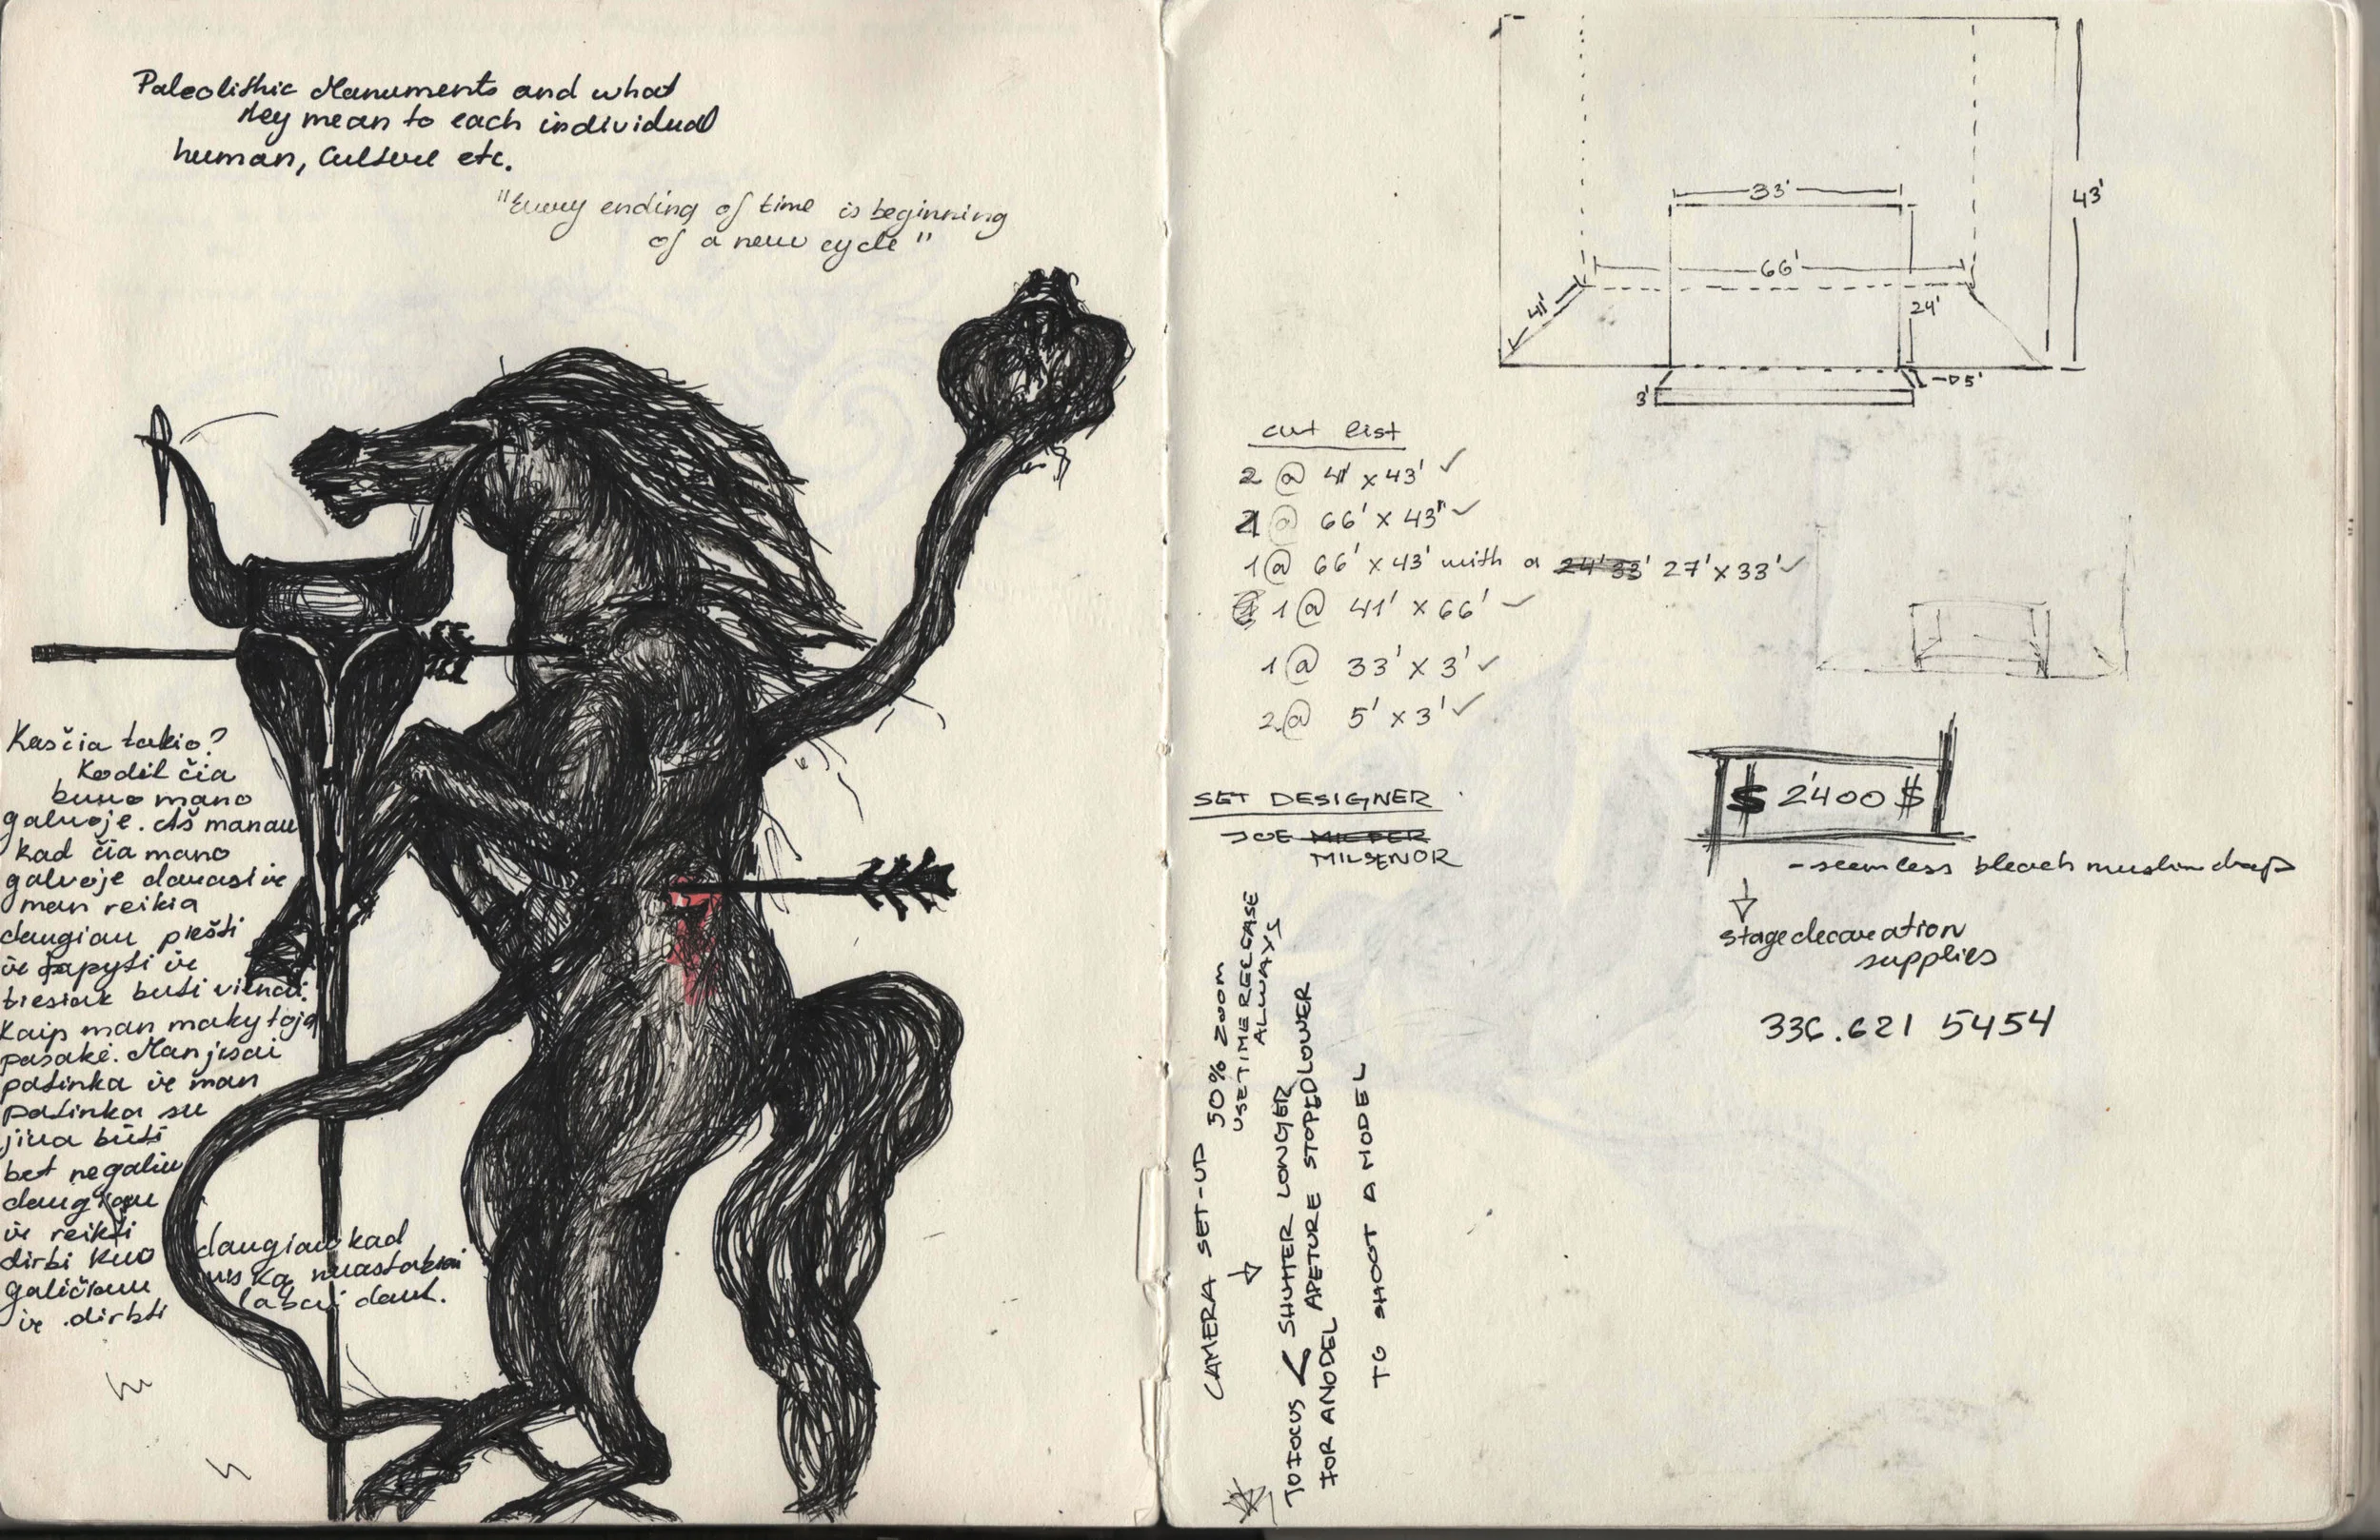 Paleolithic Manuments and what
they mean to each individual
human, Culture etc.
"Every ending of time is beginning
of a new cycle"
Kas čia tokio?
Kodėl čia
buvo mano
galvoje. Aš manau
kad čia mano
galvoje darosi ir
man reikia
daugiau piešti
ir tapyti ir
tiesiok buti
Kaip man mokytoja
pasakė. Man jisai
patinka ir man
patinka su
jiua būti
bet negaliu
daugiau
ir reikti
dirbi kuo
galiečiau
ir dirbti
daugiau kad
labai daut.
33'
66'
43'
41'
24'
5'
3'
cut list
2 @ 41' x 43' ✓
@ 66' x 43' ✓
1 @ 66' x 43' with a 27' x 33' ✓
1 @ 41' x 66' ✓
1 @ 33' x 3' ✓
2 @ 5' x 3' ✓
SET DESIGNER
JOE
MILSENOR
$ 2400 $
- seamless bleach muslin drap
stage decoration
supplies
336.621 5454
CAMERA SET-UP 50% ZOOM
USE TIME RELEASE
ALLWAYS
TO FOCUS < SHUTTER LONGER
FOR A MODEL APETURE STOPED LOWER
TO SHOOT A MODEL